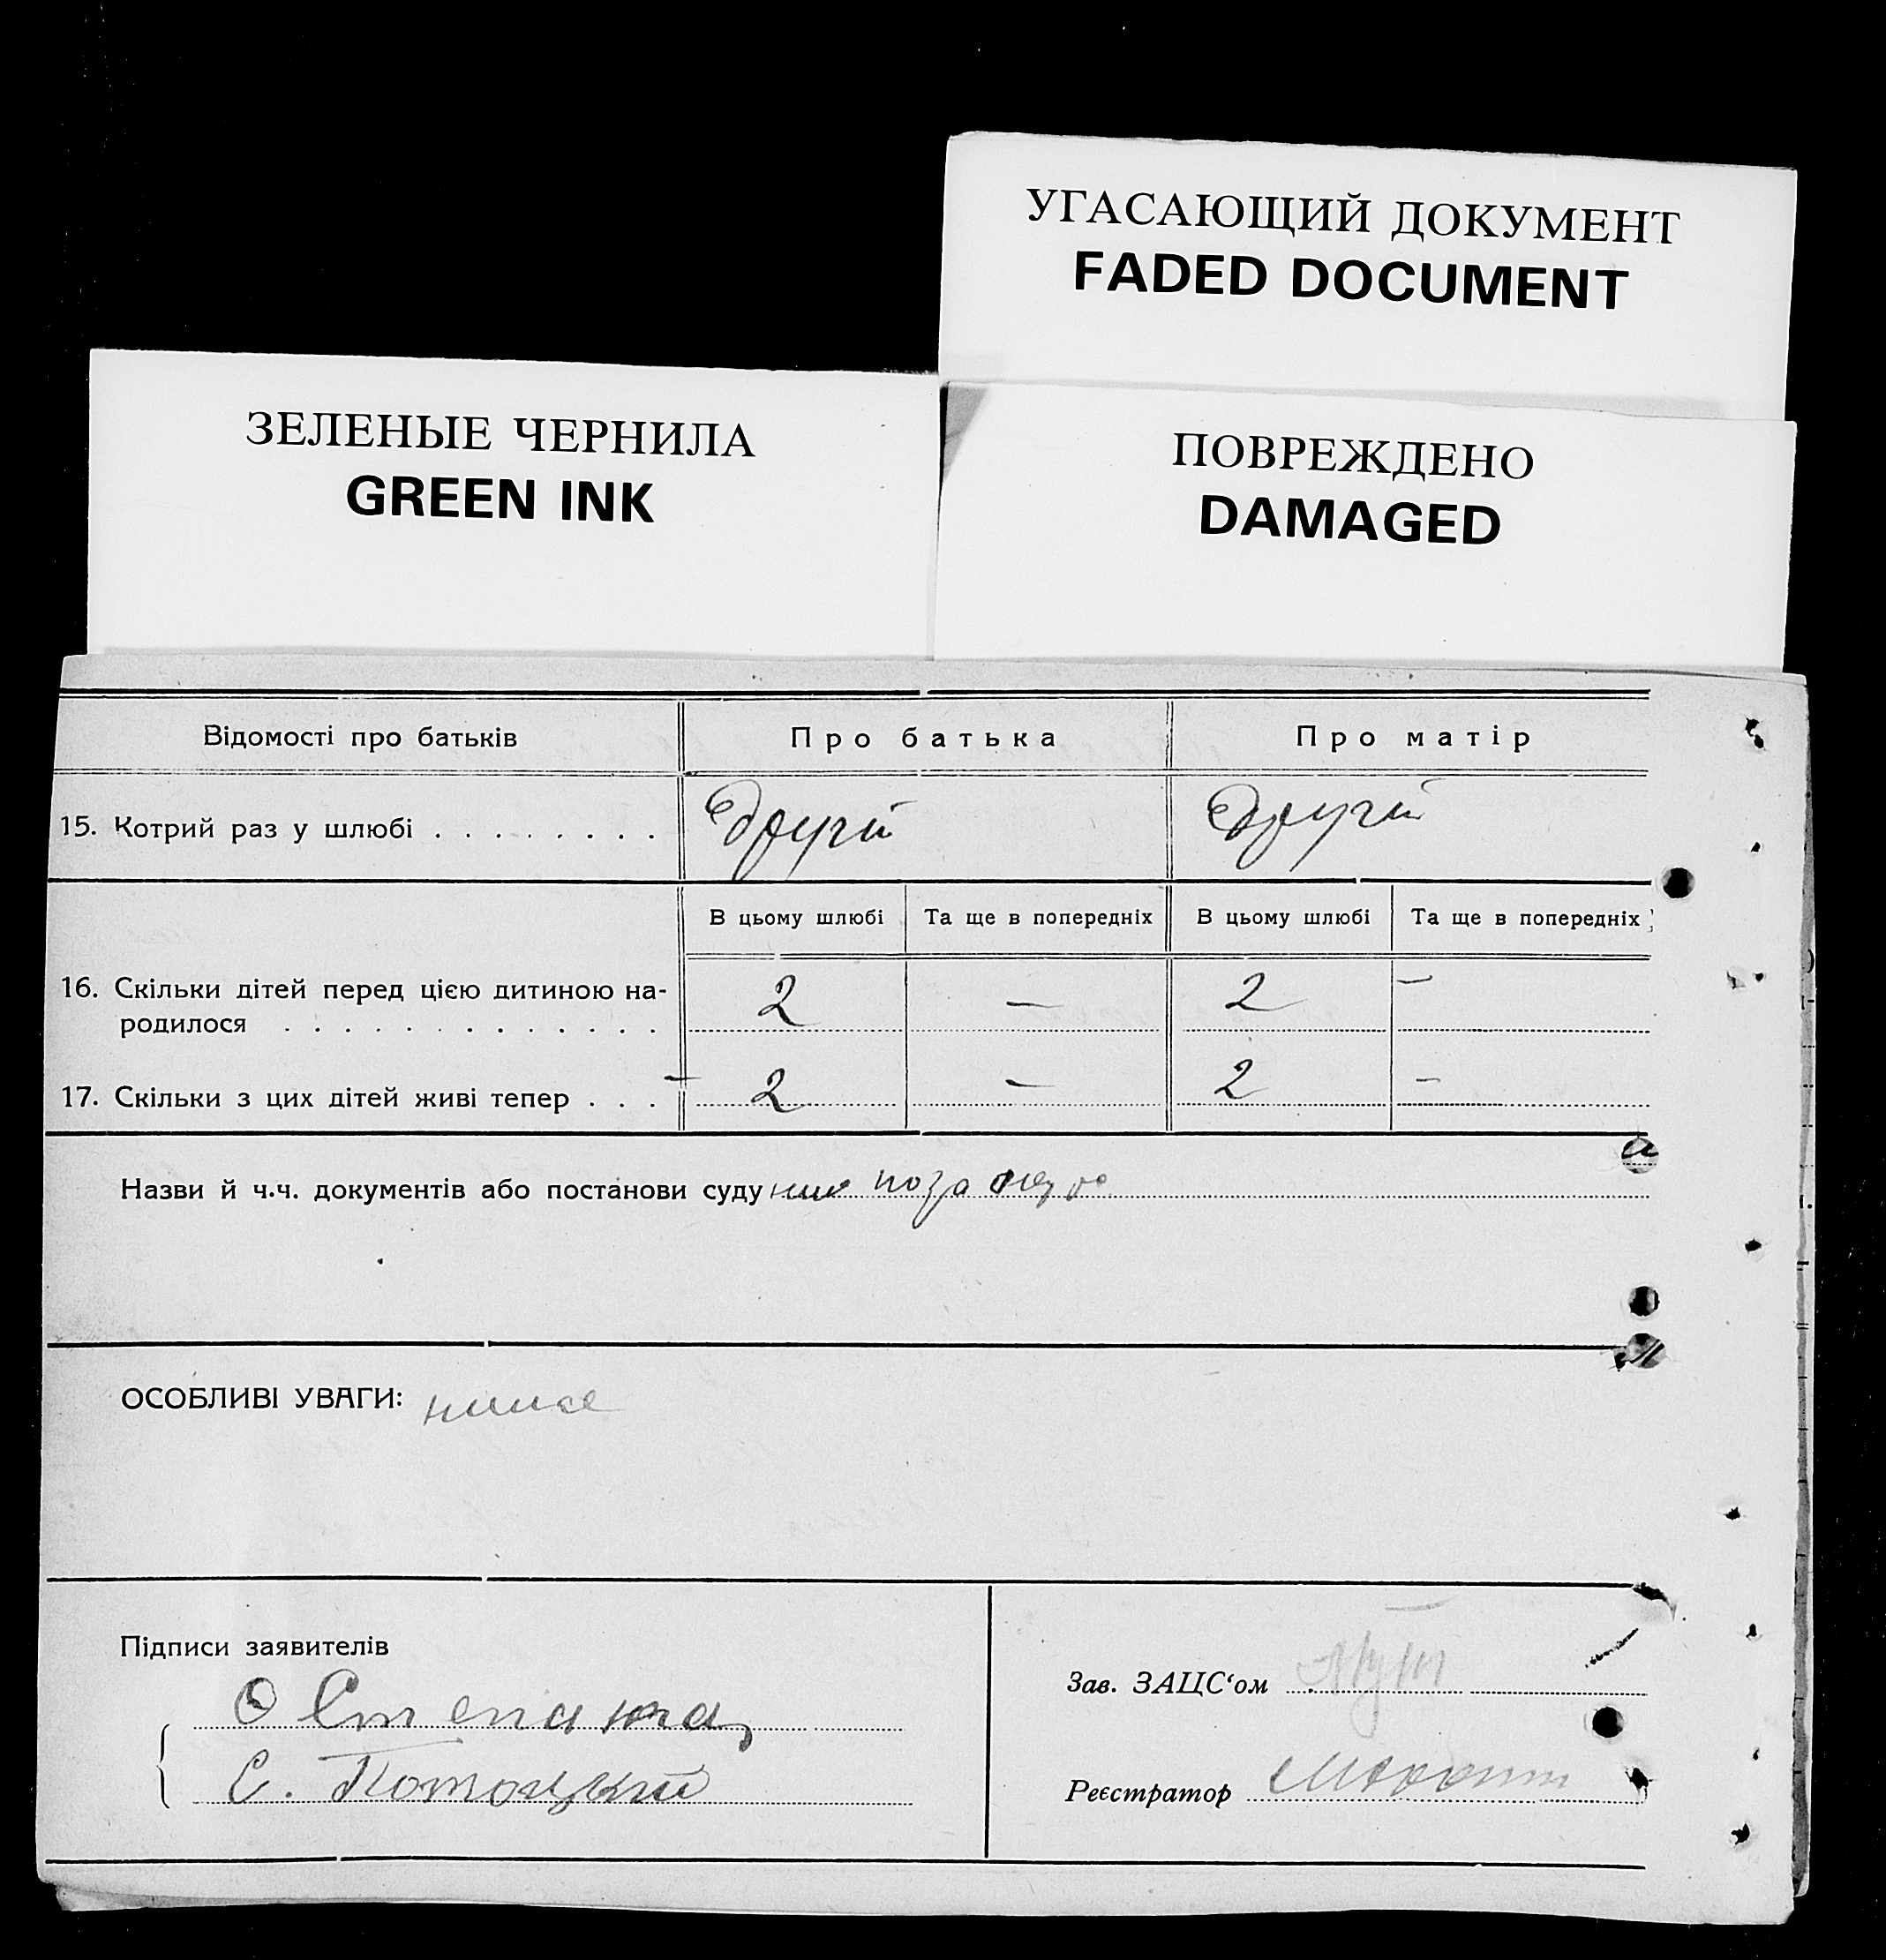 УГАСАЮЩИЙ ДОКУМЕНТ
FADED DOCUMENT
ЗЕЛЕНЫЕ ЧЕРНИЛА
GREEN INK
ПОВРЕЖДЕНО
DAMAGED
Відомості про батьків Про батька Про матір
15. Котрий раз у шлюбі . . . . . . . . другий другий
В цьому шлюбі Та ще в попередніх В цьому шлюбі Та ще в попередніх
16. Скільки дітей перед цією дитиною на-
родилося . . . . . . . . . . . . . 2 — 2 —
17. Скільки з цих дітей живі тепер . . . 2 — 2 —
Назви й ч.ч. документів або постанови суду
ОСОБЛИВІ УВАГИ:
Підписи заявителів
Зав. ЗАЦС‘ом
С. Потоцький
Реєстратор